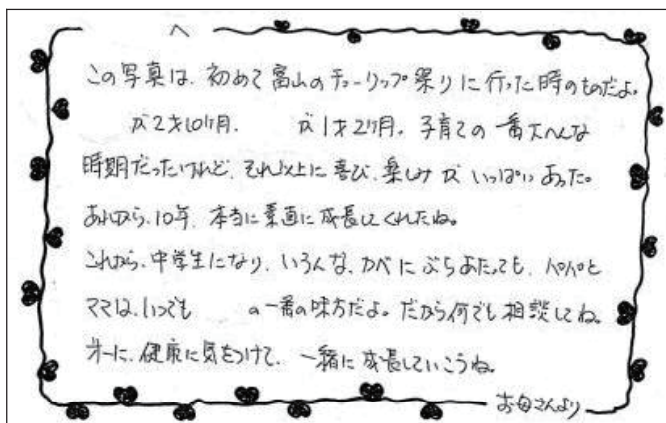 へ
この写真は、初めて富山のチューリップ祭りに行った時のものだよ。
が2才10ヶ月、 が1才2ヶ月。子育ての一番大へんな
時期だったけれど、それ以上に喜び、楽しみがいっぱいあった。
あれから、10年、本当に素直に成長してくれたね。
これから、中学生になり、いろんな、カベにぶちあたっても、パパと
ママは、いつでも の一番の味方だよ。だから何でも相談してね。
才一に、健康に気をつけて、一緒に成長していこうね。
お母さんより